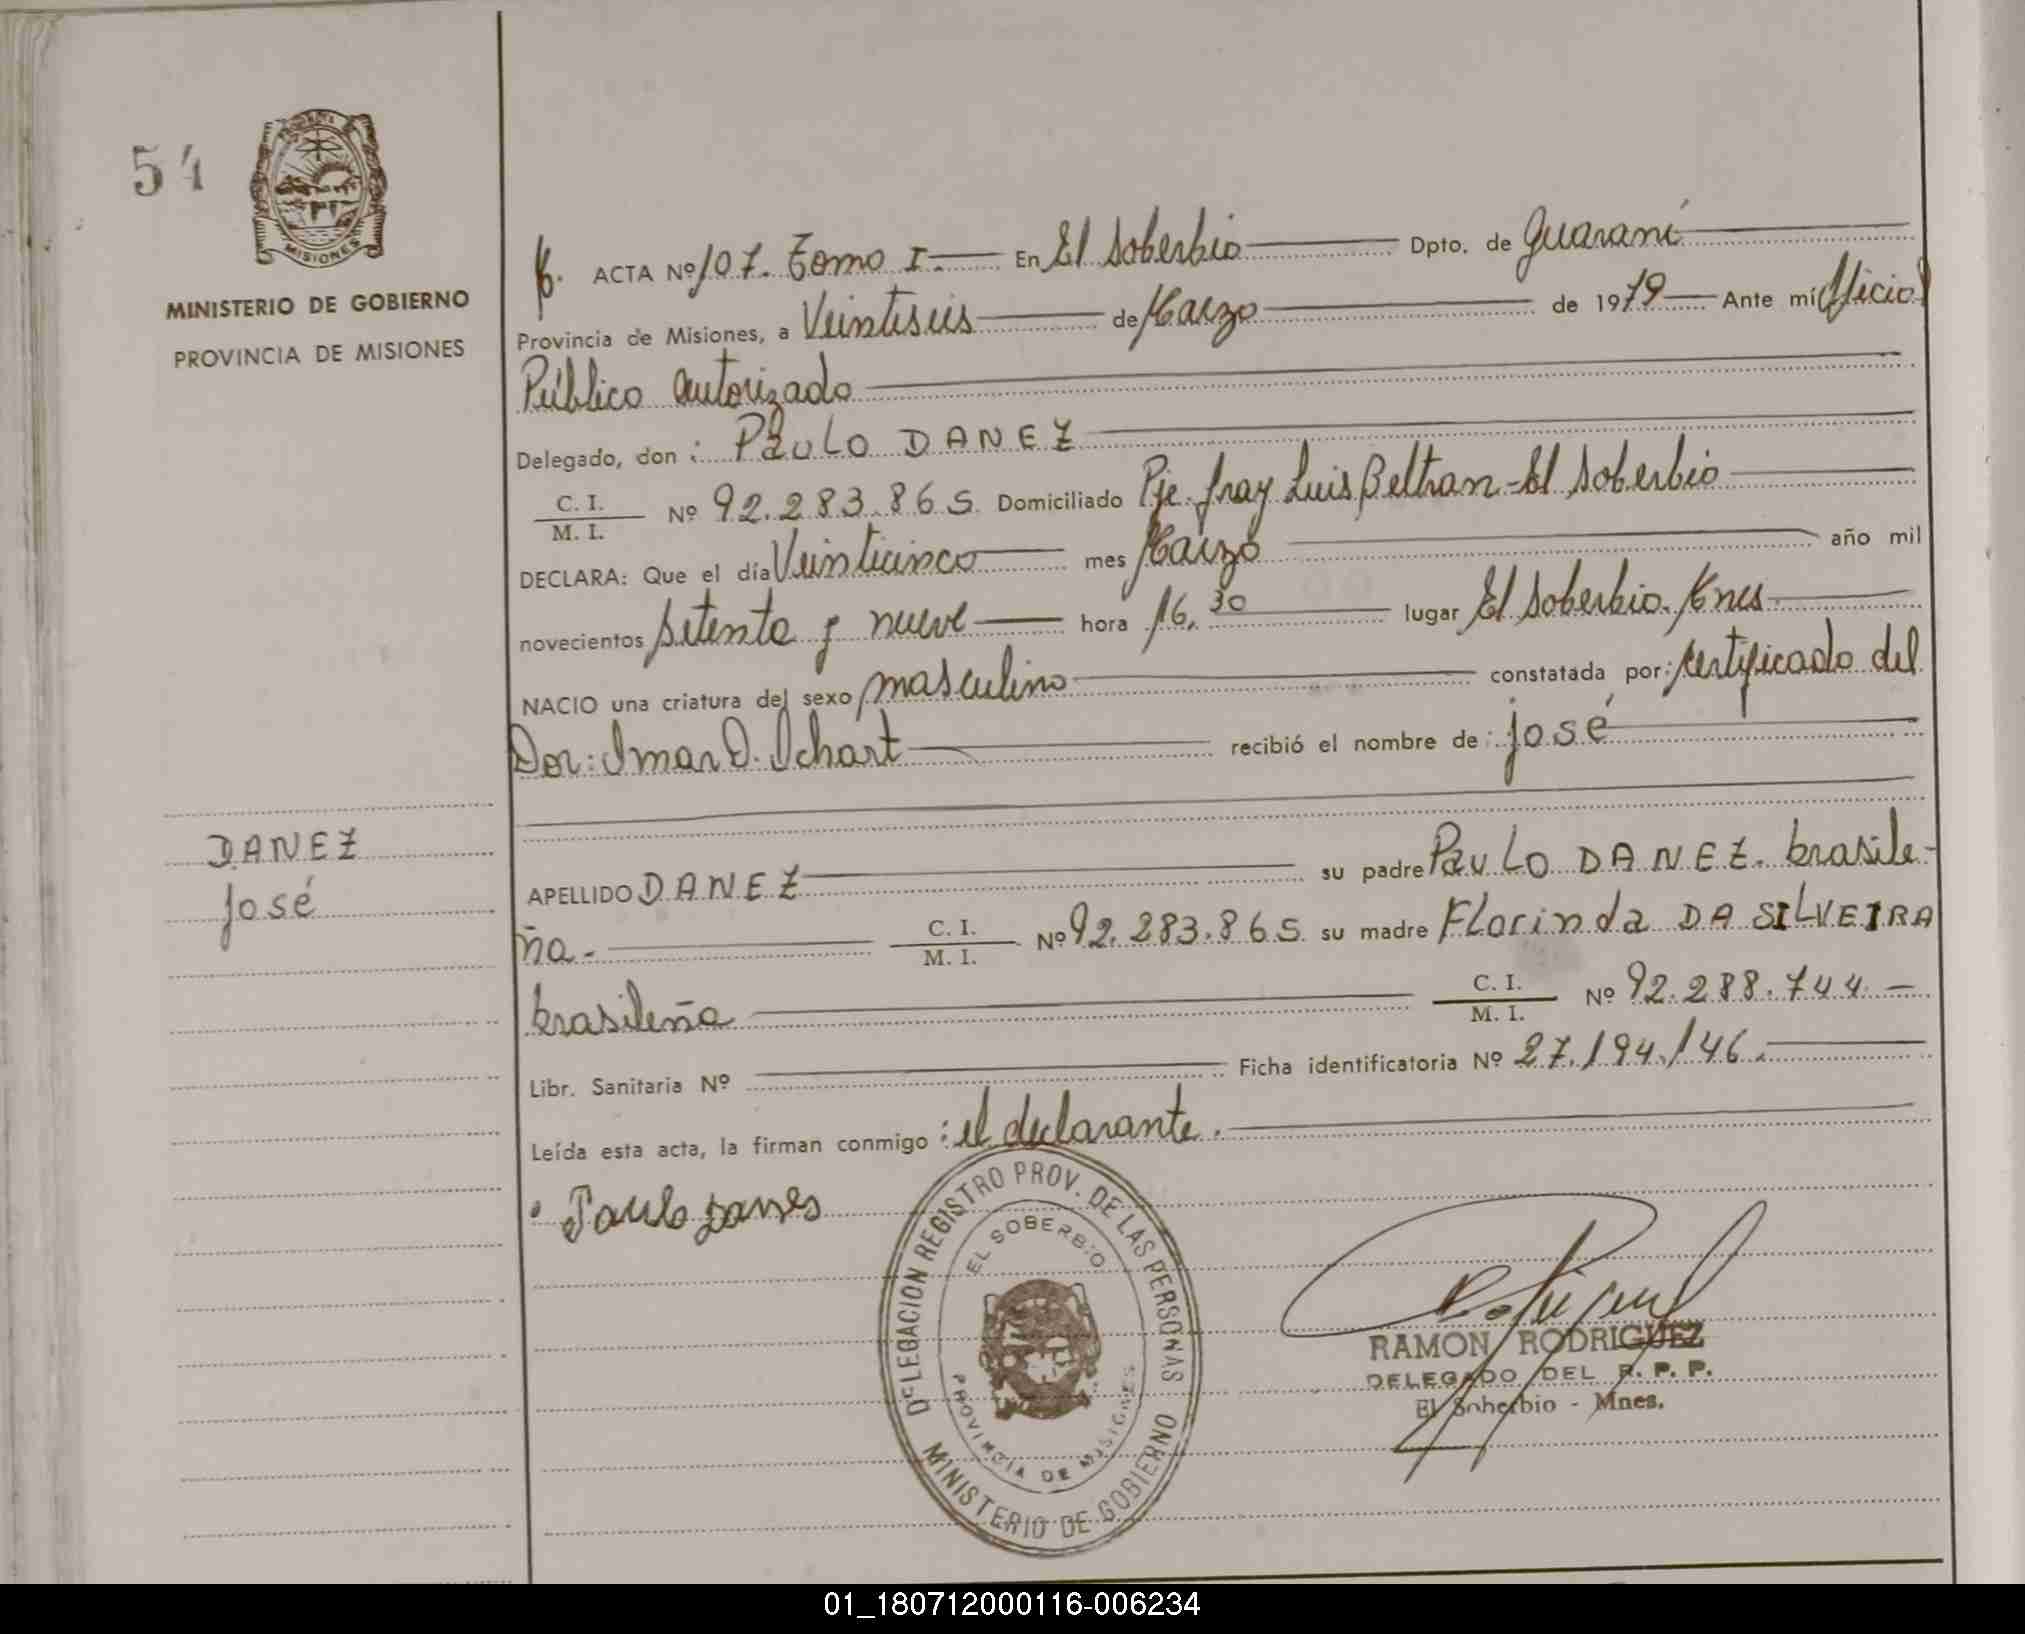 54
MISIONES
MINISTERIO DE GOBIERNO
PROVINCIA DE MISIONES
ACTA Nº 107. Tomo I. En El Soberbio Dpto. de Guaraní
Provincia de Misiones, a Veintiseis de Marzo de 1979 Ante mí Oficial
Público autorizado
Delegado, don : PAULO DANEZ
C. I. / M. I. Nº 92.283.865 Domiciliado Pje. fray Luis Beltran - El Soberbio
DECLARA: Que el día Veinticinco mes Marzo año mil
novecientos setenta y nueve hora 16,30 lugar El Soberbio. Mnes
NACIO una criatura del sexo masculino constatada por: certificado del
Dor: Omar O. Ochart recibió el nombre de : José
DANEZ
José
APELLIDO DANEZ su padre PAULO DANEZ. brasile-
ña - C. I. / M. I. Nº 92.283.865 su madre FLorinda DA SILVEIRA
brasileña C. I. / M. I. Nº 92.288.744 -
Libr. Sanitaria Nº Ficha identificatoria Nº 27.194.146.
Leída esta acta, la firman conmigo : el declarante.
Paulo Danes
DELEGACION REGISTRO PROV. DE LAS PERSONAS
EL SOBERBIO
PROVINCIA DE MISIONES
MINISTERIO DE GOBIERNO
RAMON RODRIGUEZ
DELEGADO DEL R. P. P.
El Soberbio - Mnes.
01_180712000116-006234